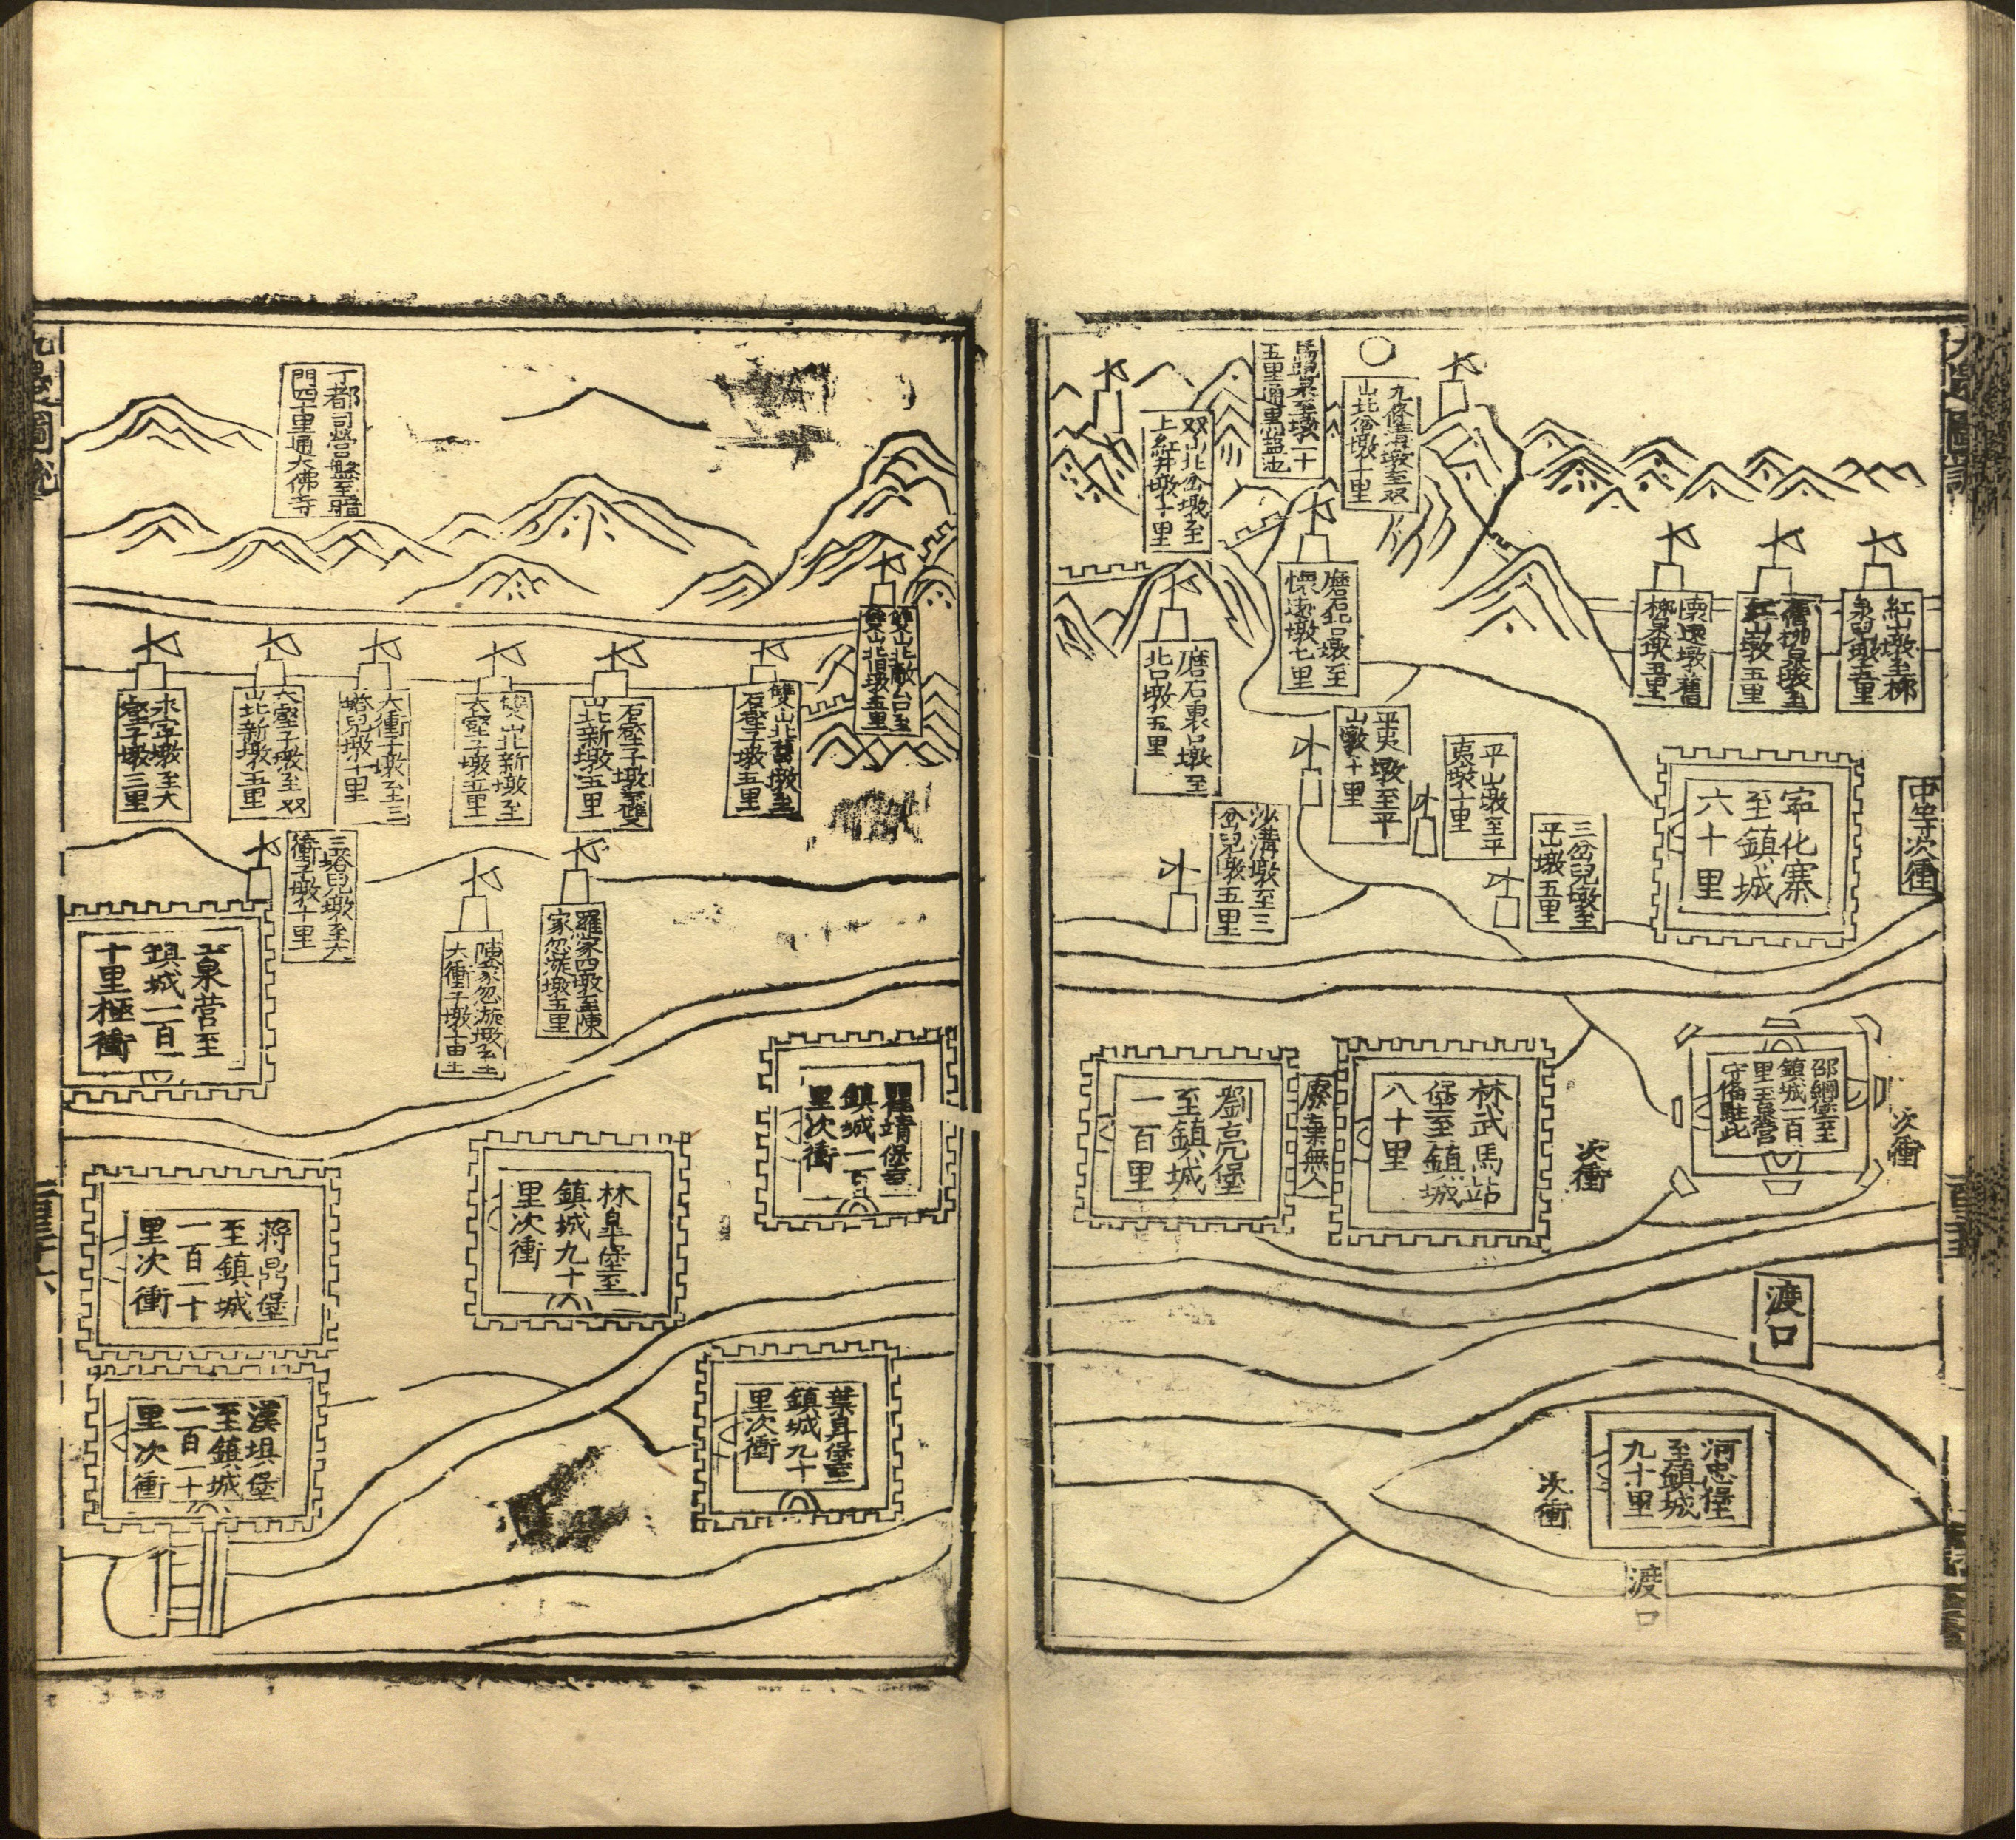 中等次衝
紅山墩至柳
泉兒墩五里
舊柳泉墩至
紅山墩五里
懷遠墩舊
柳泉墩五里
九條溝墩至双
山北岔墩十里
双山北岔墩至
上紅井墩十里
五里通
磨石北口墩至
懷遠墩七里
磨石裏口墩至
北口墩五里
平夷墩至平
山墩十里
平山墩至平
夷墩十里
三岔兒墩至
平山墩五里
沙溝墩至三
岔兒墩五里
寧化寨
至鎮城
六十里
次衝
邵綱堡至
鎮城一百
里玉泉營
守備駐此
次衝
林武馬站
堡至鎮城
八十里
廢棄無人
劉亮堡
至鎮城
一百里
渡口
河忠堡
至鎮城
九十里
次衝
渡口
雙山北敵台至
雙山北舊墩五里
雙山北舊墩至
石壑子墩五里
石壑子墩至雙
山北新墩五里
雙山北新墩至
大壑子墩五里
大衝子墩至三
塔兒墩十里
大壑子墩至双
山北新墩五里
永寧墩至大
壑子墩三里
丁都司營盤至暗
門四十里通大佛寺
三塔兒墩至大
衝子墩十里
羅家四墩至陳
家忽灘墩五里
玉泉營至
鎮城一百一
十里極衝
瞿靖堡至
鎮城一百
里次衝
林皐堡至
鎮城九十
里次衝
蔣鼎堡
至鎮城
一百一十
里次衝
葉昇堡至
鎮城九十
里次衝
漢壩堡
至鎮城
一百一十
里次衝
九邊圖說